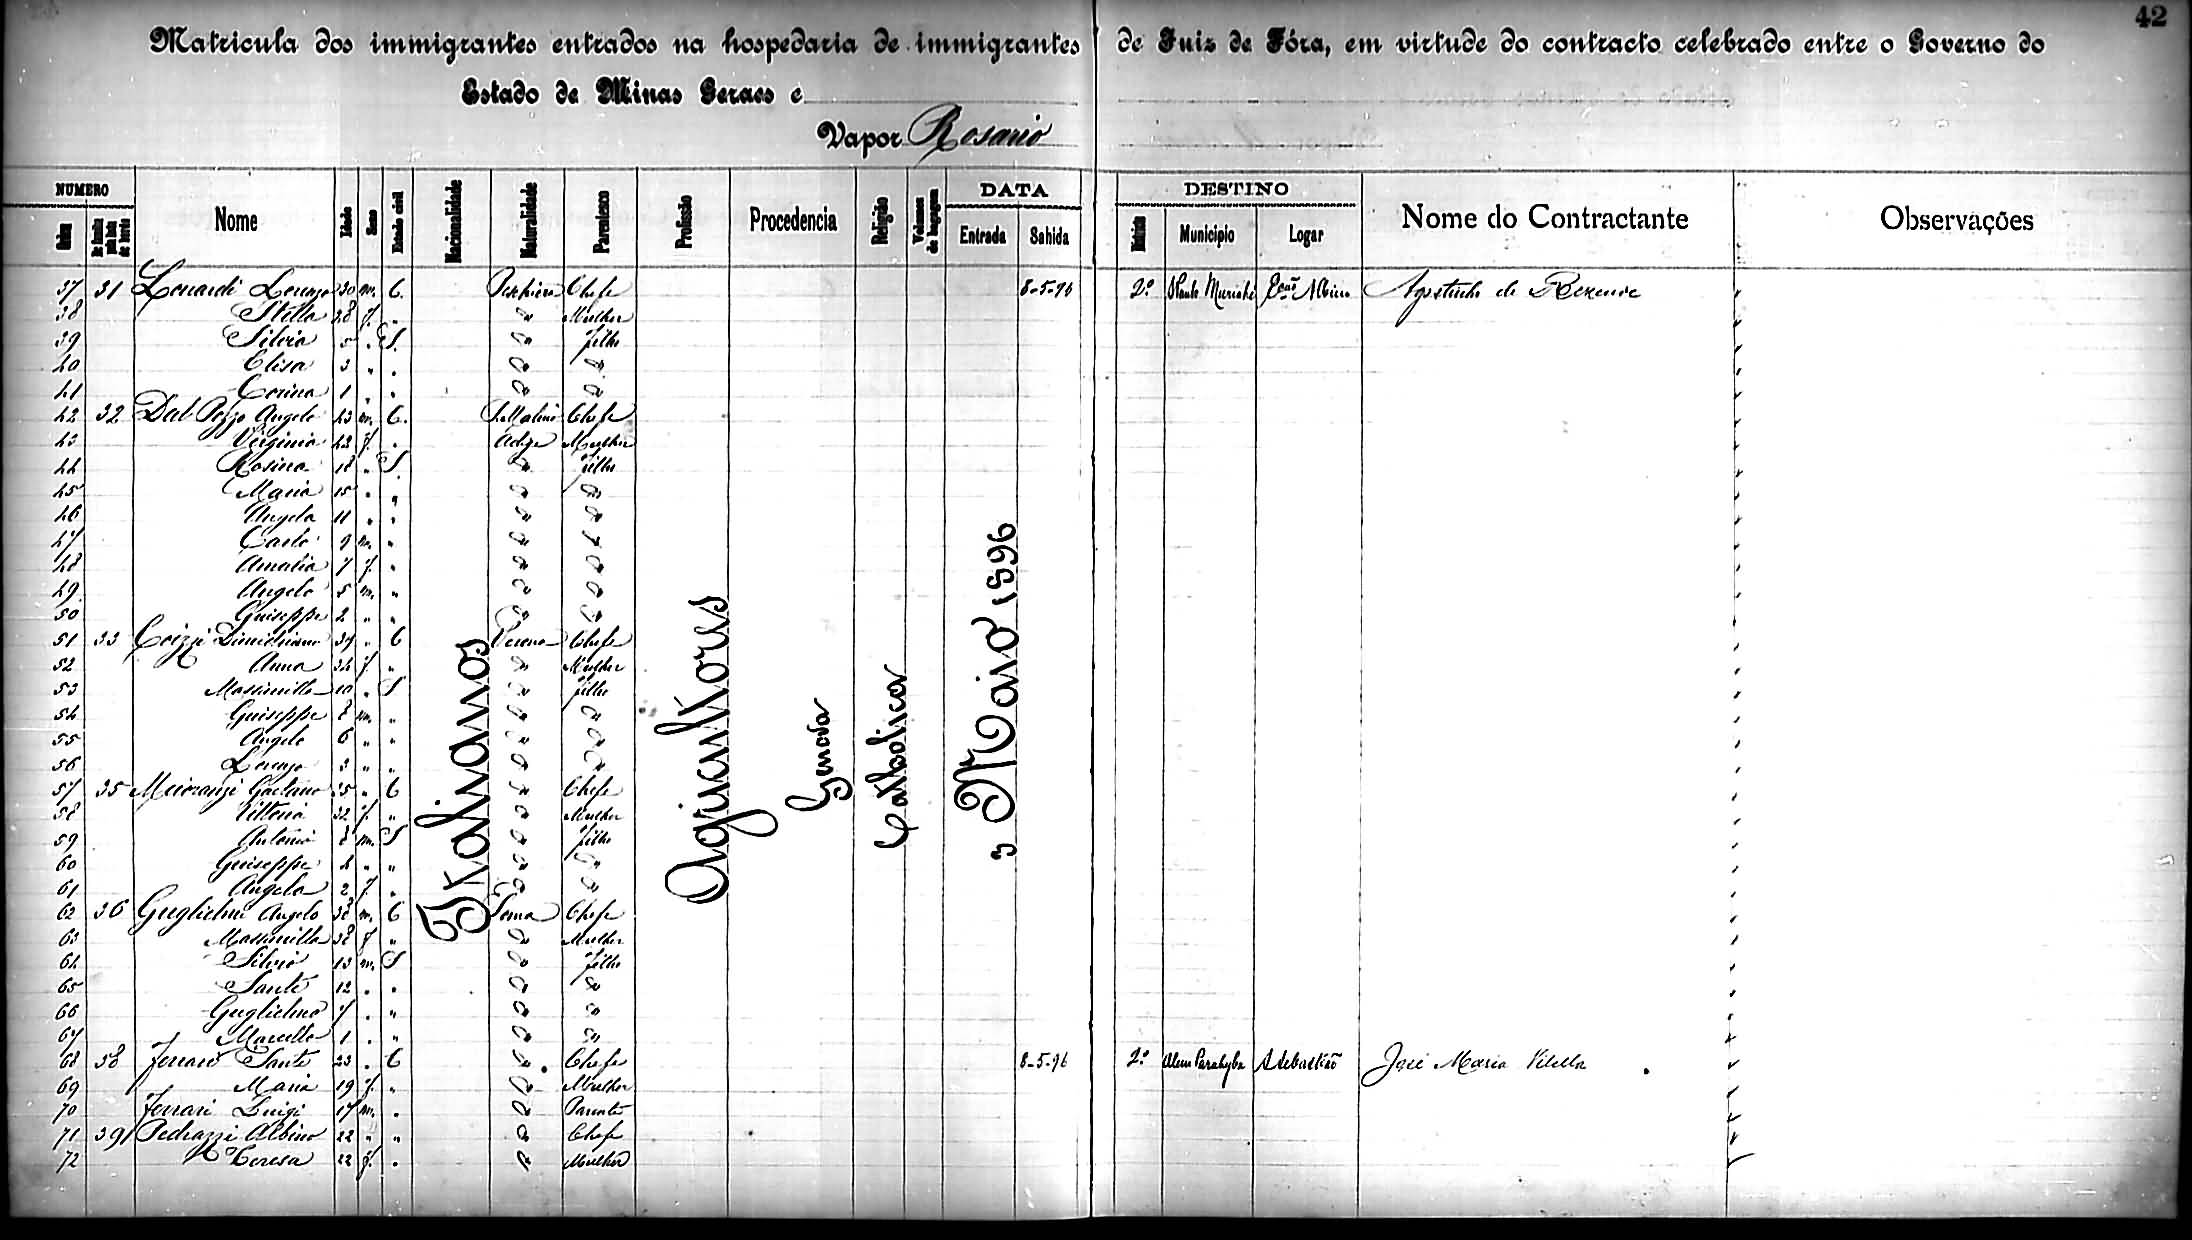 42
Matricula dos immigrantes entrados na hospedaria de immigrantes de Juiz de Fóra, em virtude do contracto celebrado entre o Governo do
Estado de Minas Geraes e
Vapor Rosario
NUMERO DATA DESTINO
Ordem Nome Idade Sexo Estado civil Nacionalidade Naturalidade Parentesco Profissão Procedencia Religião Volumes de bagagem Entrada Sahida Districto Municipio Logar Nome do Contractante Observações
37 31 Lonardi Lorenzo 30 m. C. Peschiera Chefe 8-5-96 2º S Paulo Muriahé Albino Agostinho de Rezende
38 Stella 28 f. " " Mulher
39 Silvia 5 . S. " filho
40 Elisa 3 " . " "
41 Corina 1 " " " "
42 32 Dal Pozzo Angelo 43 m. C. Chefe
43 Virginia 42 f. . Adige Mulher
44 Rosina 18 " S " filho
45 Maria 15 . " " "
46 Angela 11 " " " "
47 Carlo 9 m. " " "
48 Amalia 7 f. " " "
49 Angelo 5 m. " " "
50 Guiseppe 2 " " " "
51 33 37 " C Verona Chefe
52 Anna 34 f. " " Mulher
53 Massimilla 10 . S " filho
54 Guiseppe 8 m. " " "
55 Angelo 6 " " " "
56 Lorenzo 3 " " " "
57 35 Gaetano 35 " C " Chefe
58 Vittoria 32 f. " " Mulher
59 Antonio 8 m. S " filho
60 Guiseppe 4 " " " "
61 Angela 2 f. " " "
62 36 Guglielmi Angelo 38 m. C Chefe
63 Massimilla 38 f " " Mulher
64 Silvio 13 m. S " filho
65 Sante 12 . . " "
66 Guglielmo 7 . " " "
67 Marcello 1 . " " "
68 38 Ferrari Sante 23 . C " Chefe 8-5-96 2º Alem Parahyba S Sebastião José Maria Vilella
69 Maria 19 f. " " Mulher
70 Ferrari Luigi 17 m. . " Parente
71 39 Pedrazzi Albino 22 " " " Chefe
72 Teresa 22 f. . " Mulher
Italianos
Agricultores
Genova
Catholica
3 Maio 1896